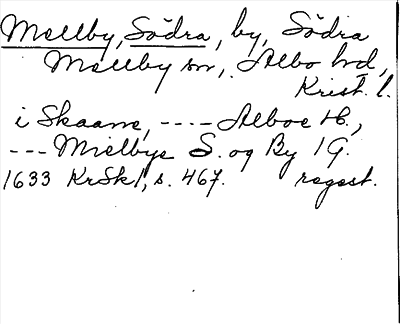 Mellby, Södra, by, Södra
Mellby sn, Albo hd,
Krist. l.
i Skaane, ---- Alboe H.,
--- Mielbye S. og By 1 G.
1633 KrSk1, s. 467. regest.